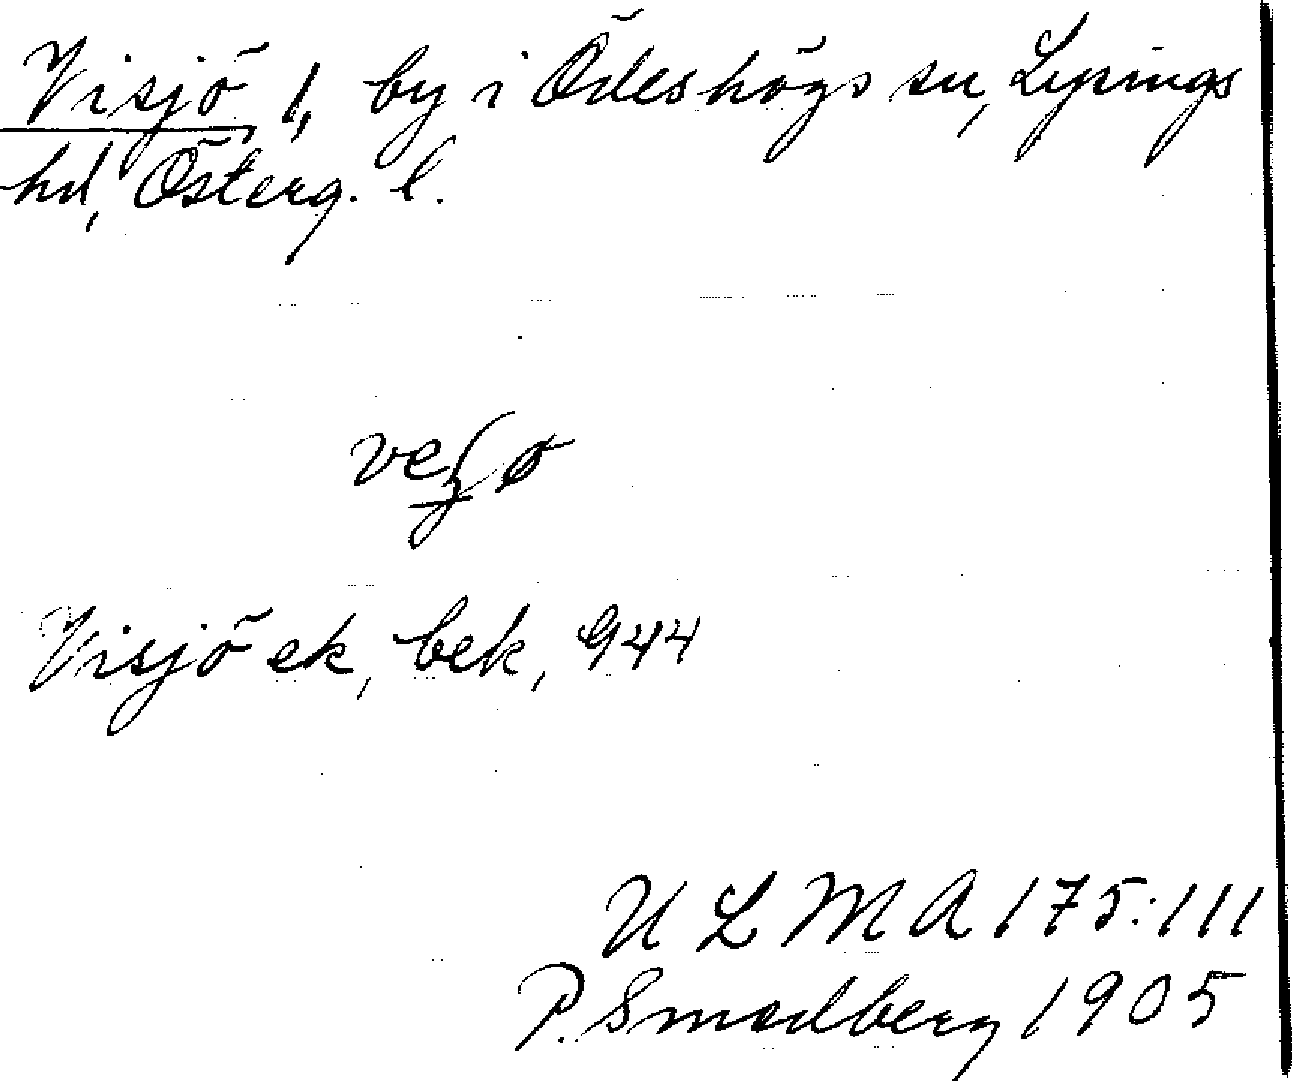 Visjö 1, by i Ödeshögs sn, Lysings
hd, Österg. l.
Visjö ek, bek, 944
ULMA 175:111
P. Smedberg 1905